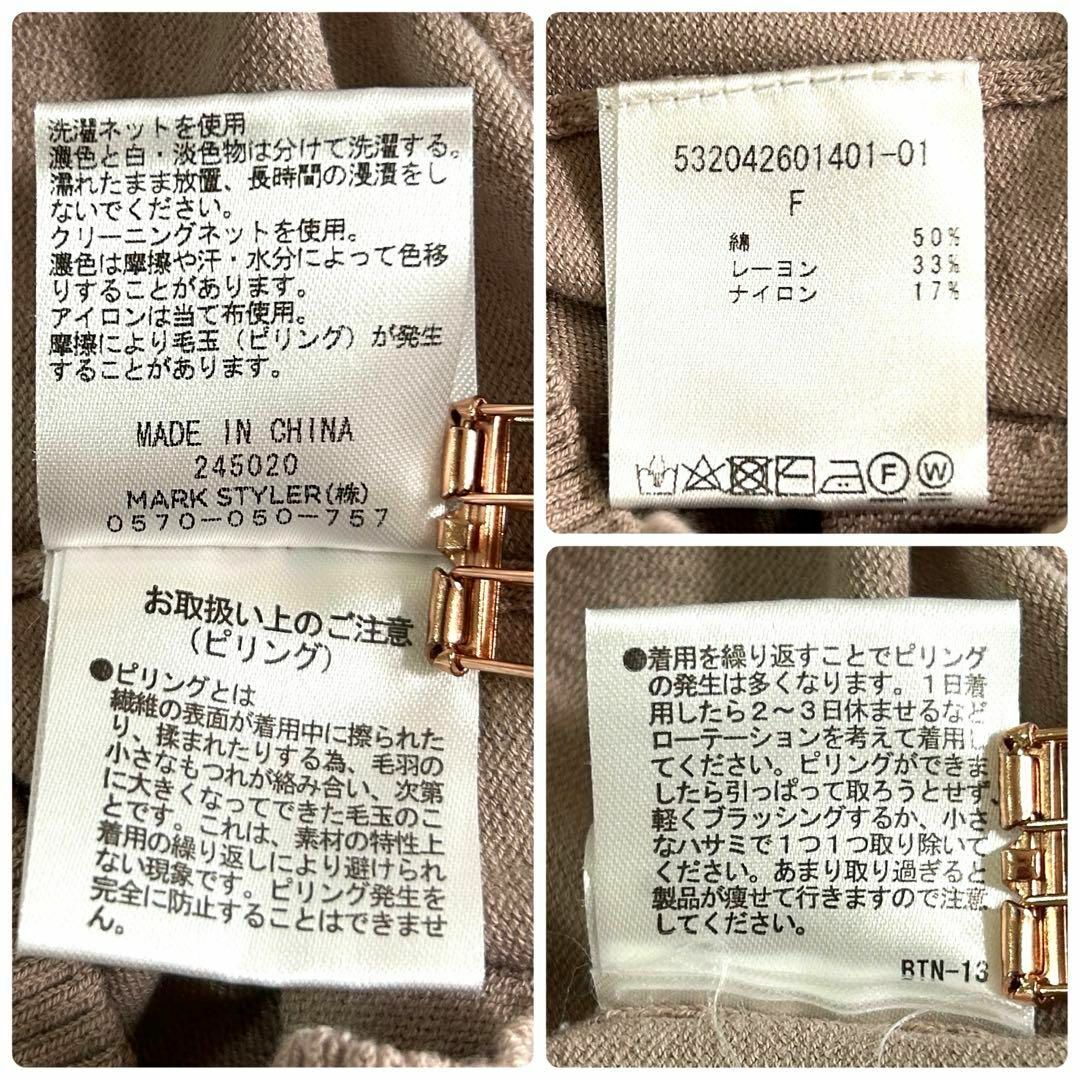 洗濯ネットを使用
濃色と白・淡色物は分けて洗濯する。
濡れたまま放置、長時間の浸漬をし
ないでください。
クリーニングネットを使用。
濃色は摩擦や汗・水分によって色移
りすることがあります。
アイロンは当て布使用。
摩擦により毛玉（ピリング）が発生
することがあります。
MADE IN CHINA
245020
MARK STYLER(株)
0570-050-757
お取扱い上のご注意
（ピリング）
●ピリングとは
繊維の表面が着用中に擦られた
り、揉まれたりする為、毛羽の
小さなもつれが絡み合い、次第
に大きくなってできた毛玉のこ
とです。これは、素材の特性上
着用の繰り返しにより避けられ
ない現象です。ピリング発生を
完全に防止することはできませ
ん。
532042601401-01
F
綿 50%
レーヨン 33%
ナイロン 17%
F W
●着用を繰り返すことでピリング
の発生は多くなります。1日着
用したら2～3日休ませるなど
ローテーションを考えて着用し
てください。ピリングができま
したら引っぱって取ろうとせず、
軽くブラッシングするか、小さ
なハサミで1つ1つ取り除いて
ください。あまり取り過ぎると
製品が痩せて行きますので注意
してください。
BTN-13